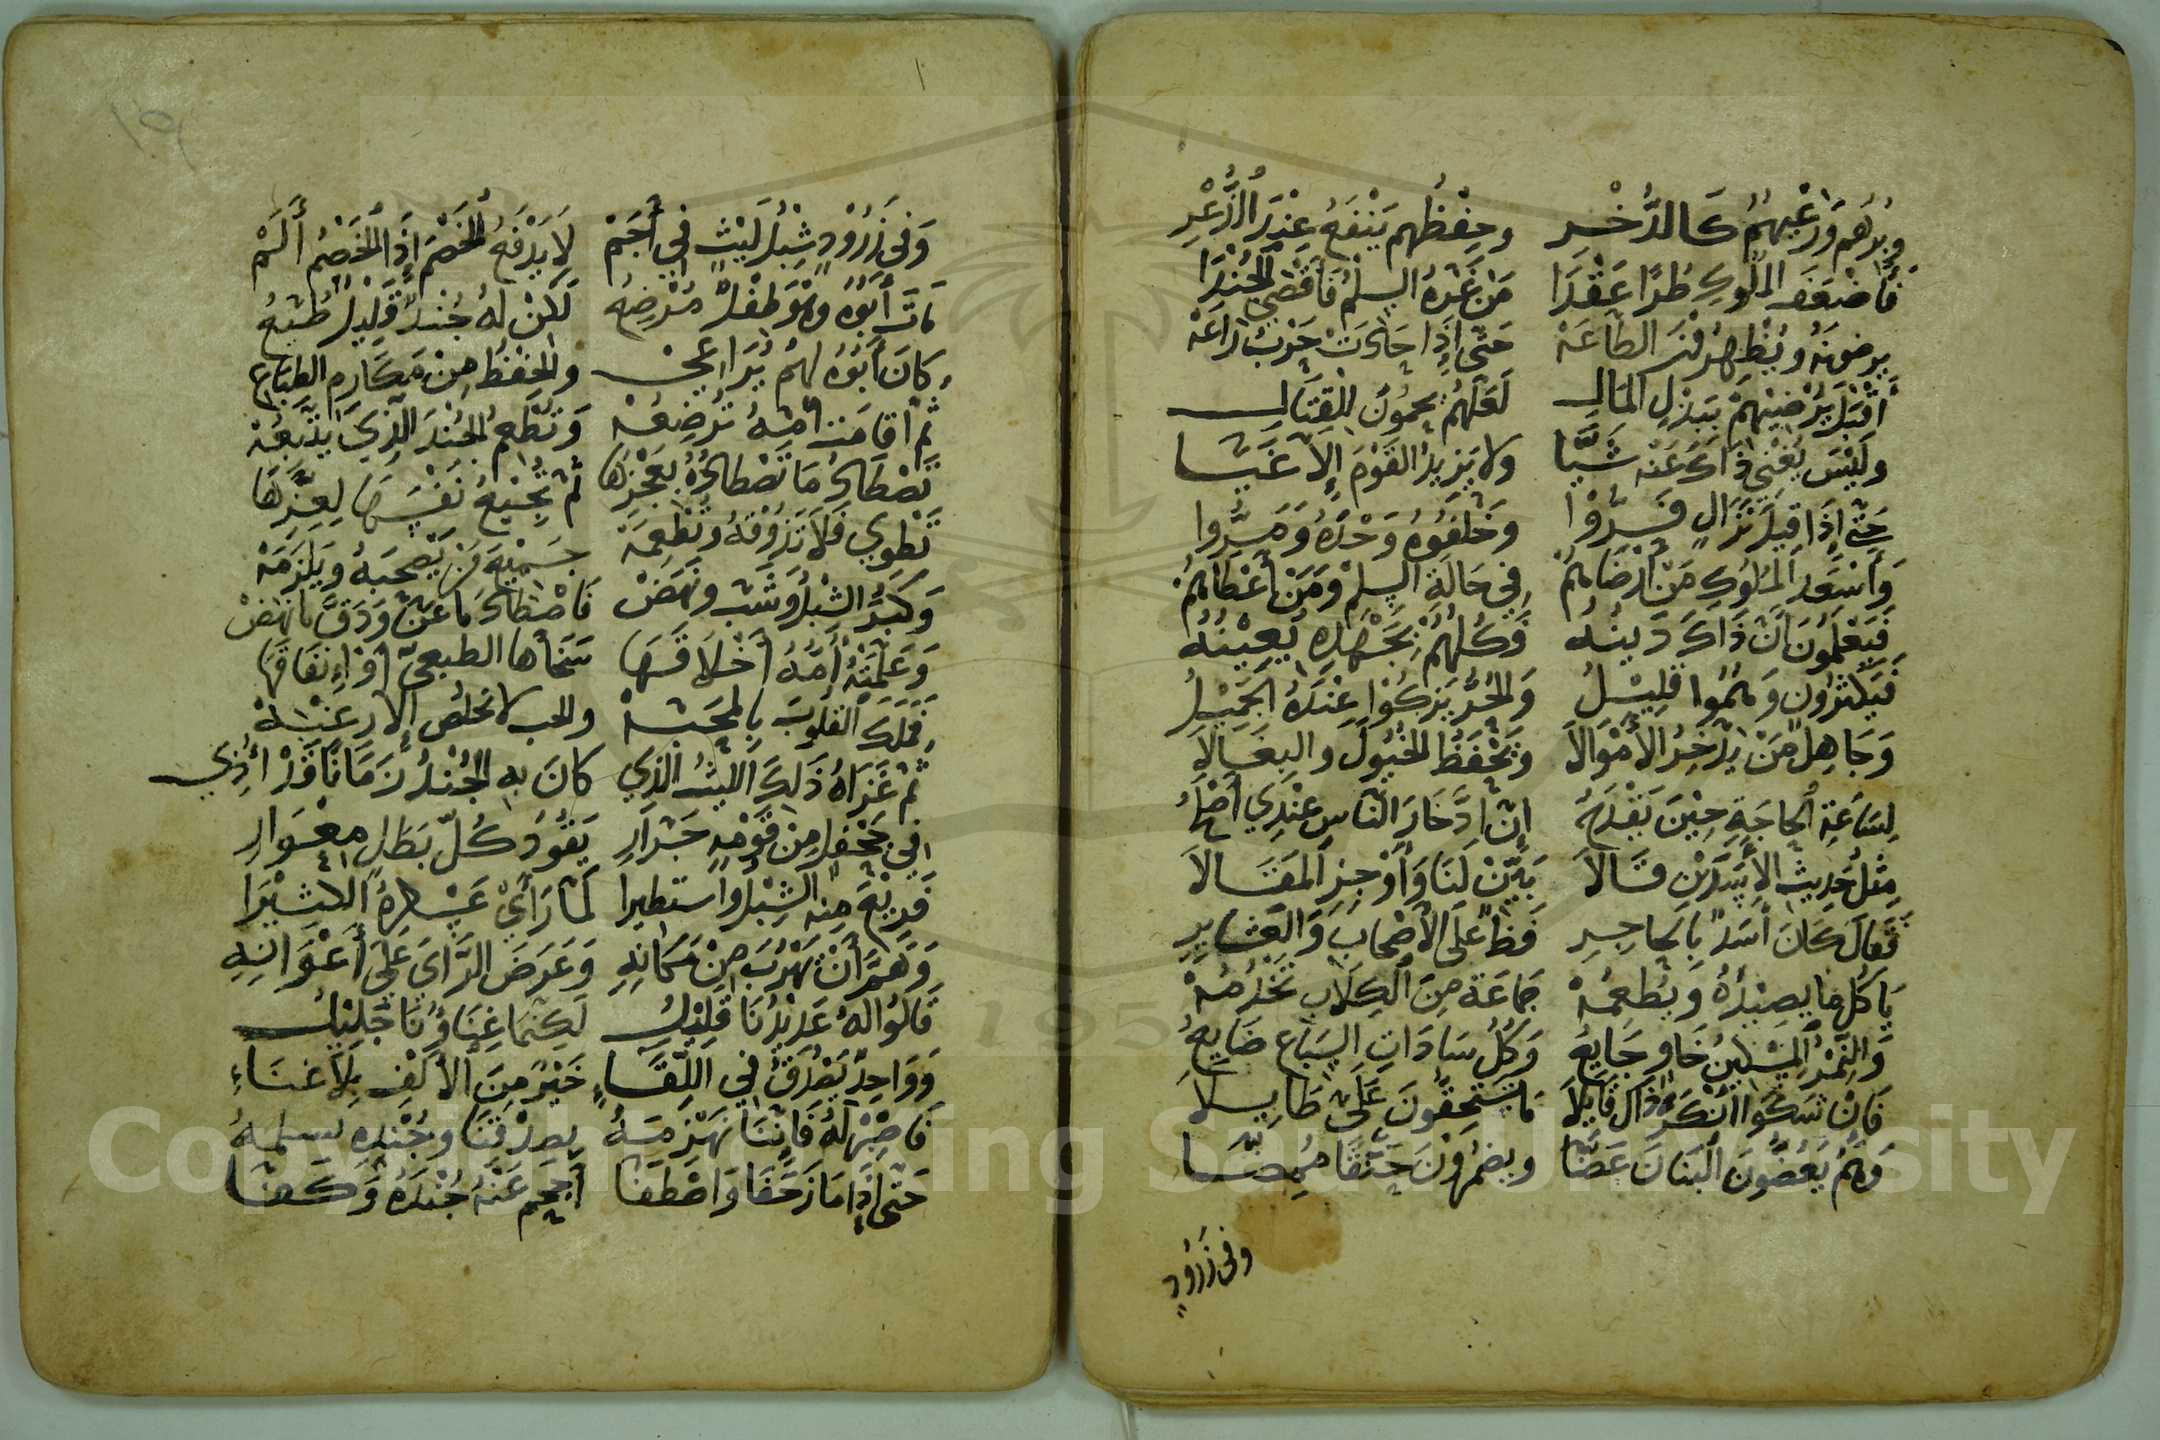 وبرهم ورعيهم كالذخر وحفظهم ينفع عند الذعر
فأضعف الملوك طرا عقدا من غره السلم فأقصى الجندا
يرضونه ويظهرون الطاعة حتى إذا جاءت حرب راعه
أقبل يرضيهم ببذل المال لعلهم يحمون للقتال
وليس يغني ذاك عنه شيا ولا يزيد القوم إلا غيا
حتى إذا قيل نزال فروا وخلفوه وحده ومروا
وأسعد الملوك من أرضاهم في حالة السلم ومن أعطاهم
فيعلمون أن ذاك دينه فكلهم بجهده يعينه
فيكثرون وهموا قليل والحر يزكوا عنده الجميل
وجاهل من يذخر الأموالا ويحفظ الخيول والبغالا
لساعة الحاجة حين يقدح إن ادخار الناس عندي أصلح
مثل حديث الأسدين قالا بين لنا وأوجز المقالا
فقال كان أسد بالحاجر فظ على الأصحاب والعشاير
يأكل ما يصيده ويطعمه جماعة من الكلاب تخدمه
والنمر المسكين خاو جايع وكل سادات السباع ضايع
فإن شكوا أنكر ذاك قايلا ما يستحقون علي طايلا
وهم يعضون البنان عضا ويضمرون حنقا ممضا
وفي زرود
وفي زرود شبل ليث في أجم لا يدفع الخصم إذا الخصم ألم
مات أبوه وهو طفل مرضع لكن له جند قليل طيع
كان أبوه لهم يراعي والحفظ من مكارم الطباع
ثم أقامت أمه ترضعه وتطعم الجند الذي يتبعه
تصطاد ما تصطاده بعجزها ثم تجيع نفسها لعزها
تطوي فلا تذوقه وتطعمه جميع من يصحبه ويلزمه
وكبر الشبل وشب ونهض فاصطاد ما عن ودق ما نهض
وعلمته أمه أخلاقها سخاءها الطبعي أو إنفاقها
فملك القلوب بالمحبة والحب لا يخلص إلا رغبة
ثم غزاه ذلك الليث الذي كان به الجند زمانا قد أذي
في جحفل من قومه جرار يقود كل بطل مغوار
فريع منه الشبل واستطيرا لما رأى عسكره الكثيرا
وهم أن يهرب من مكانه وعرض الراي على أعوانه
قالوا له عديدنا قليل لكنما غناؤنا جليل
وواحد يصدق في اللقاء خير من الألف بلا غناء
فاصبر له فإننا نهزمه بصدقنا وجنده يسلمه
حتى إذا ما زحفا واصطفا أحجم عنه جنده وكفا